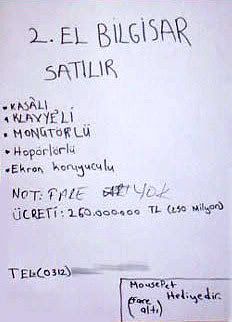 2. EL BİLGİSAR
SATILIR
• KASALI
• KLAVYELİ
• MONGTÖRLÜ
• Hoparlörlü
• Ekron koruyuculu
NOT: FARE YOK
ÜCRETİ: 260.000.000 TL (250 Milyon)
TEL:(0312)
MousePet
(Fare altı) Hediyedir.